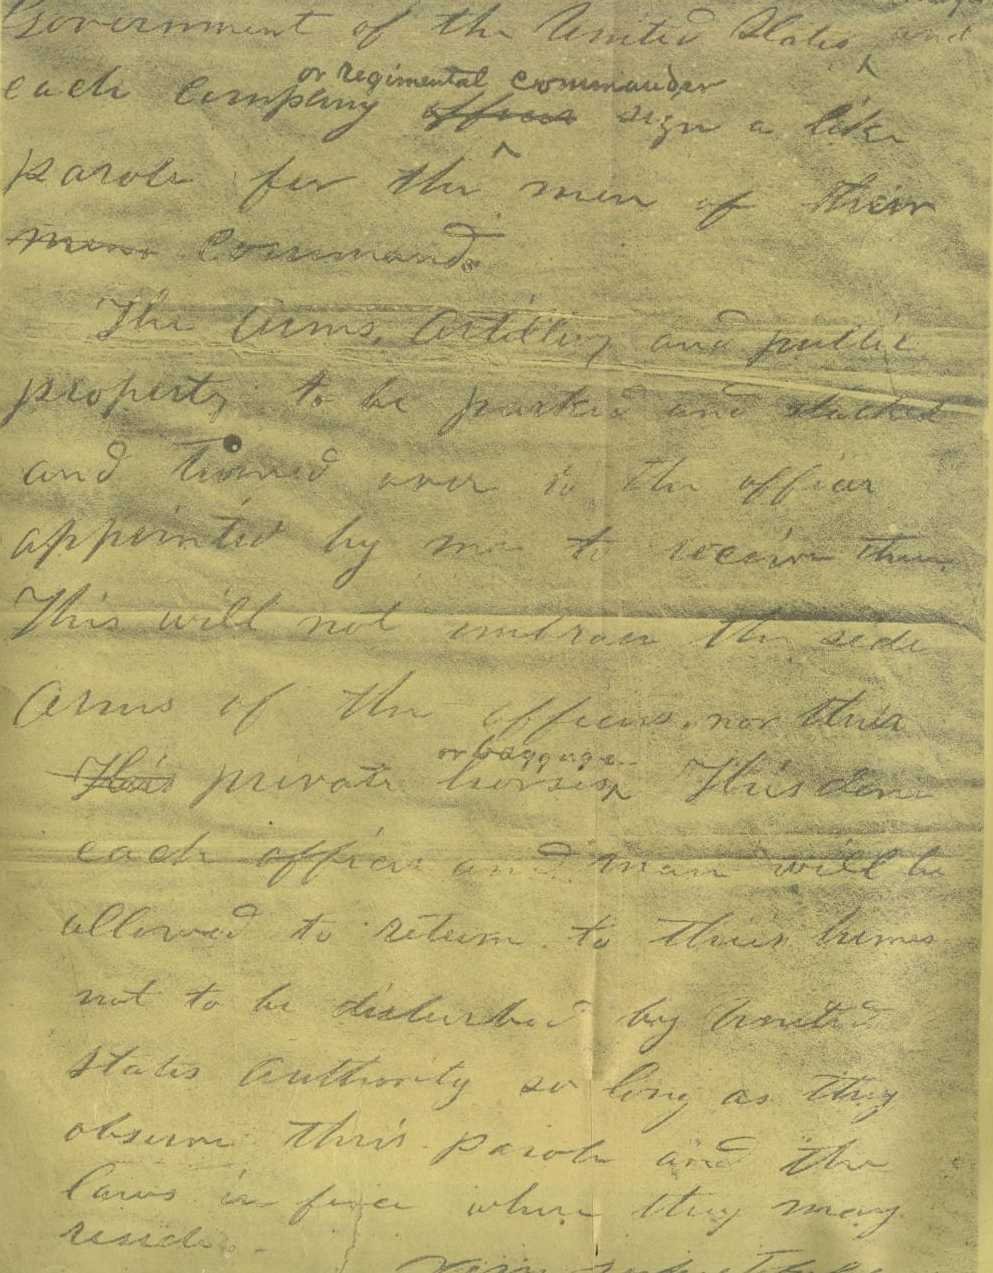 Government of the United States and
or regimental commander
each company officer sign a like
parole for the men of their
mens commands.
The Arms, Artillery and public
property to be parked and stacked
and turned over to the officer
appointed by me to receive them.
This will not embrace the side
Arms of the officers, nor their
or baggage.
This private horses This done
each officer and man will be
allowed to return to their homes
not to be disturbed by United
States Authority so long as they
observe their parole and the
laws in force where they may
reside.
Very respectfully